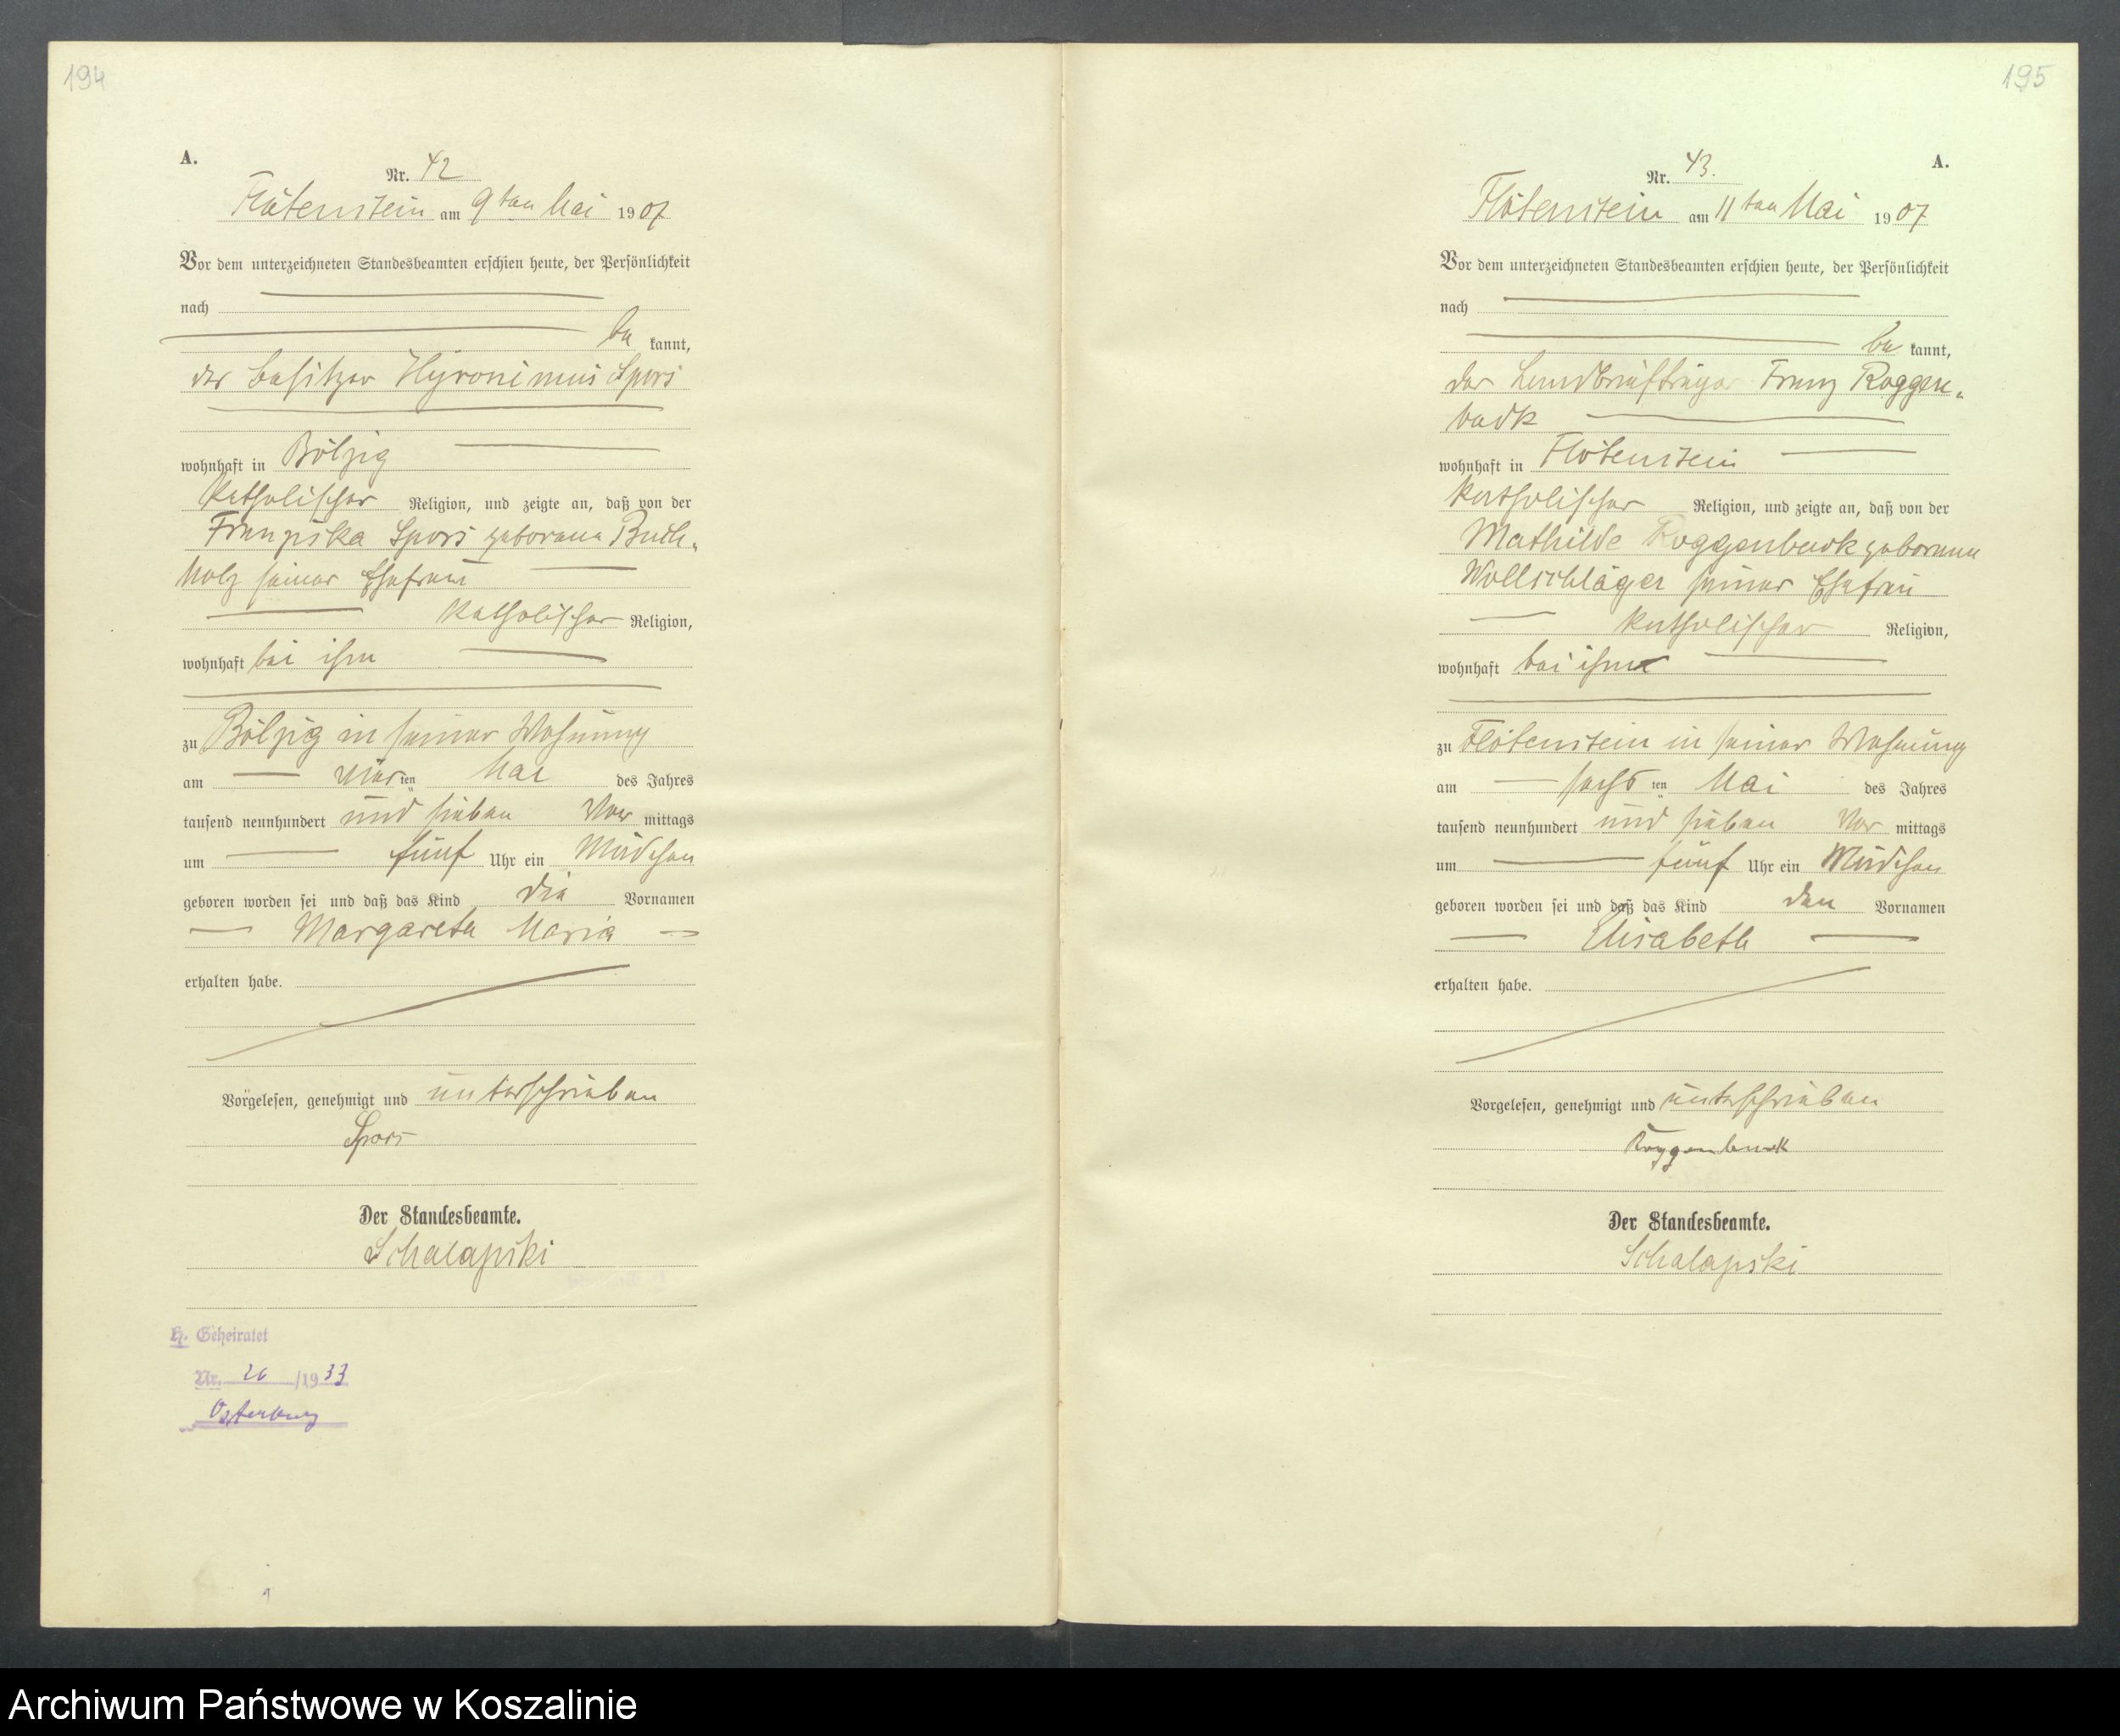 194
A.
Nr. 42
Flötenstein am 9ten Mai 1907
Vor dem unterzeichneten Standesbeamten erschien heute, der Persönlichkeit
nach
be kannt,
der Besitzer Hyronimus Spors
wohnhaft in Bölzig
katholischer Religion, und zeigte an, daß von der
Franziska Spors geborene Buch-
holz seiner Ehefrau
katholischer Religion,
wohnhaft bei ihm
zu Bölzig in seiner Wohnung
am vierten Mai des Jahres
tausend neunhundert und sieben Vor mittags
um fünf Uhr ein Mädchen
geboren worden sei und daß das Kind die Vornamen
Margareta Maria
erhalten habe.
Vorgelesen, genehmigt und unterschrieben
Spors
Der Standesbeamte.
Schalapski
H. Geheiratet
Nr. 26 /1933
Osterburg
195
A.
Nr. 43.
Flötenstein am 11ten Mai 1907
Vor dem unterzeichneten Standesbeamten erschien heute, der Persönlichkeit
nach
be kannt,
der Landbriefträger Franz Roggen-
buck
wohnhaft in Flötenstein
katholischer Religion, und zeigte an, daß von der
Mathilde Roggenbuck geborene
Wollschläger seiner Ehefrau
katholischer Religion,
wohnhaft bei ihm
zu Flötenstein in seiner Wohnung
am sechsten Mai des Jahres
tausend neunhundert und sieben Vor mittags
um fünf Uhr ein Mädchen
geboren worden sei und daß das Kind den Vornamen
Elisabeth
erhalten habe.
Vorgelesen, genehmigt und unterschrieben
Roggenbuck
Der Standesbeamte.
Schalapski
Archiwum Państwowe w Koszalinie